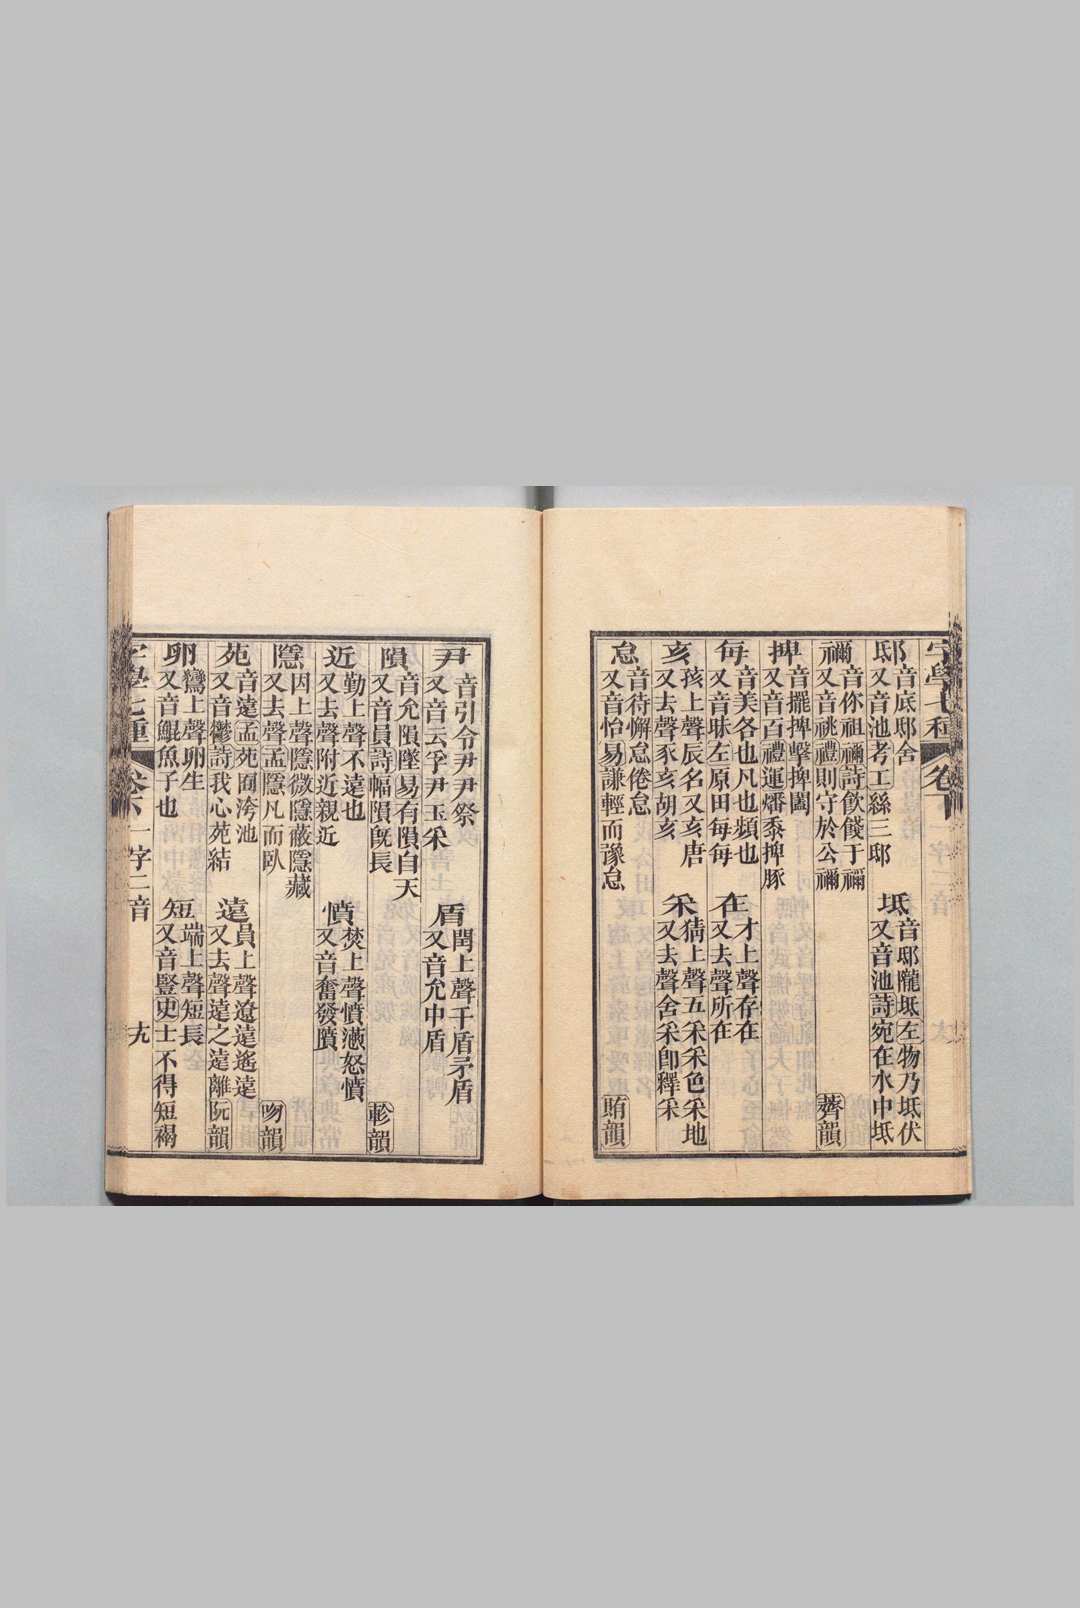 字學七種
卷下
一字二音
邸音底邸舍
又音池考工絲三邸
坻音邸隴坻左物乃坻伏
又音池詩宛在水中坻
禰音你祖禰詩飲餞于禰
又音祧禮則守於公禰
薺韻
捭音擺捭擊捭闔
又音百禮運燔黍捭豚
每音美各也凡也頻也
又音昧左原田每每
在才上聲存在
又去聲所在
亥孩上聲辰名又亥唐
又去聲豕亥胡亥
采猜上聲五采采色采地
又去聲舍采卽釋采
怠音待懈怠倦怠
又音怡易謙輕而豫怠
賄韻
尹音引令尹尹祭
又音云孚尹玉采
盾閏上聲干盾矛盾
又音允中盾
隕音允隕墜易有隕自天
又音員詩幅隕旣長
軫韻
近勤上聲不遠也
又去聲附近親近
憤焚上聲憤懣怒憤
又音奮發憤
隱因上聲隱微隱蔽隱藏
又去聲孟隱凡而臥
吻韻
苑音遠孟苑囿洿池
又音鬱詩我心苑結
遠員上聲遼遠遙遠
又去聲遠之遠離
阮韻
卵鸞上聲卵生
又音鯤魚子也
短端上聲短長
又音豎史士不得短褐
字學七種
卷下
一字二音
十九